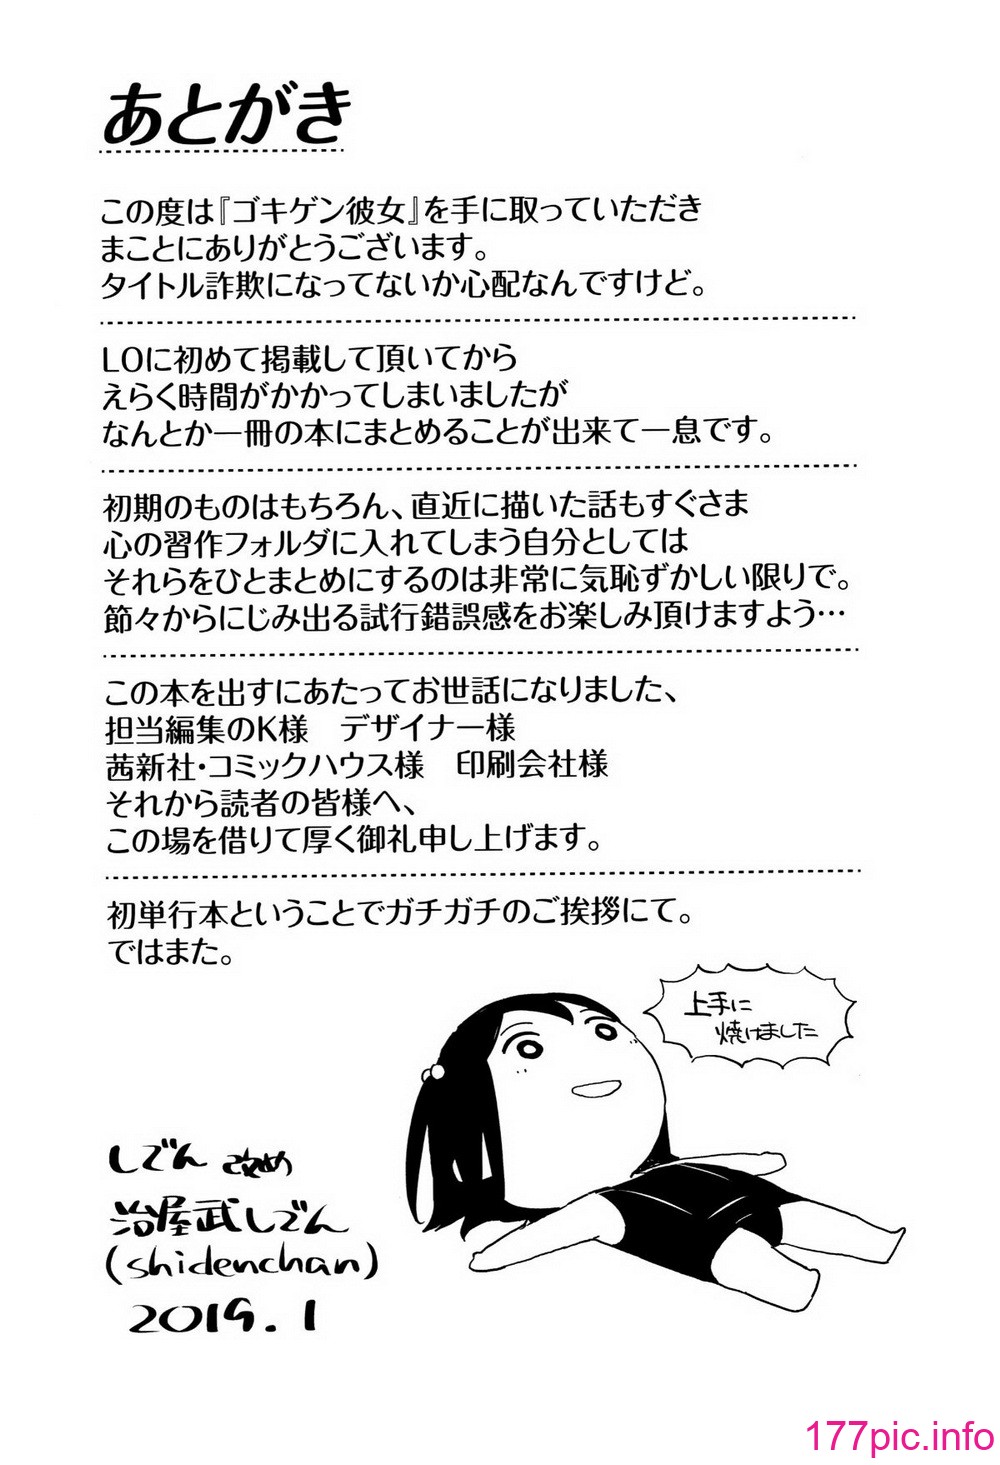 あとがき
この度は『ゴキゲン彼女』を手に取っていただき
まことにありがとうございます。
タイトル詐欺になってないか心配なんですけど。
LOに初めて掲載して頂いてから
えらく時間がかかってしまいましたが
なんとか一冊の本にまとめることが出来て一息です。
初期のものはもちろん、直近に描いた話もすぐさま
心の習作フォルダに入れてしまう自分としては
それらをひとまとめにするのは非常に気恥ずかしい限りで。
節々からにじみ出る試行錯誤感をお楽しみ頂けますよう…
この本を出すにあたってお世話になりました、
担当編集のK様　デザイナー様
茜新社・コミックハウス様　印刷会社様
それから読者の皆様へ、
この場を借りて厚く御礼申し上げます。
初単行本ということでガチガチのご挨拶にて。
ではまた。
上手に
焼けました
しでん 改め
治屋武しでん
(shidenchan)
2019.1
177pic.info